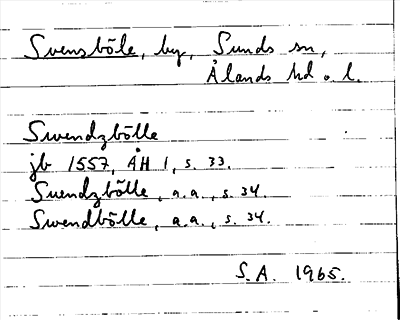 Svensböle, by, Sunds sn,
Ålands hd o. l.
Swendzbölle
jb 1557, ÅH 1, s. 33.
Suendzbölle, a.a., s. 34.
Swendbölle, a.a., s. 34.
S.A. 1965.